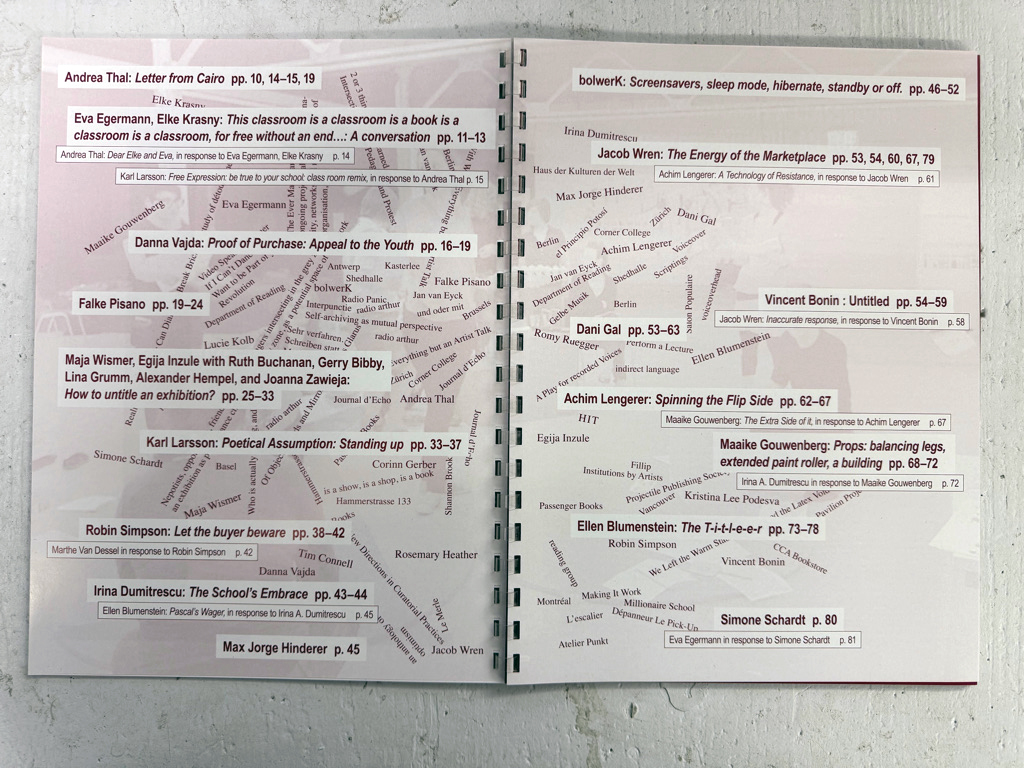 Andrea Thal: Letter from Cairo pp. 10, 14–15, 19
Elke Krasny
Eva Egermann, Elke Krasny: This classroom is a classroom is a book is a
classroom is a classroom, for free without an end…: A conversation pp. 11–13
Andrea Thal: Dear Elke and Eva, in response to Eva Egermann, Elke Krasny p. 14
Karl Larsson: Free Expression: be true to your school: class room remix, in response to Andrea Thal p. 15
Maaike Gouwenberg
Eva Egermann
Danna Vajda: Proof of Purchase: Appeal to the Youth pp. 16–19
Antwerp
Kasterlee
Shedhalle
Falke Pisano
bolwerK
Radio Panic
Jan van Eyck
Falke Pisano pp. 19–24
Revolution
Department of Reading
Interpunctie
radio arthur
und oder mir
Brussels
Self-archiving as mutual perspective
Sehr verfahren
radio arthur
Lucie Kolb
Schreiben
everything but an Artist Talk
Maja Wismer, Egija Inzule with Ruth Buchanan, Gerry Bibby,
Lina Grumm, Alexander Hempel, and Joanna Zawieja:
How to untitle an exhibition? pp. 25–33
Zürich
Corner College
Journal d'Echo
radio arthur
Journal d'Echo
Andrea Thal
Karl Larsson: Poetical Assumption: Standing up pp. 33–37
Simone Schardt
Basel
Corinn Gerber
Shannon Brook
is a show, is a shop, is a book
Maja Wismer
Who is actually
Hammerstrasse 133
Robin Simpson: Let the buyer beware pp. 38–42
Marthe Van Dessel in response to Robin Simpson p. 42
Tim Connell
Rosemary Heather
Danna Vajda
New Directions in Curatorial Practices
Irina Dumitrescu: The School's Embrace pp. 43–44
Ellen Blumenstein: Pascal's Wager, in response to Irina A. Dumitrescu p. 45
Le Merle
Max Jorge Hinderer p. 45
an anthology of
optimism
Jacob Wren
bolwerK: Screensavers, sleep mode, hibernate, standby or off. pp. 46–52
Irina Dumitrescu
Jacob Wren: The Energy of the Marketplace pp. 53, 54, 60, 67, 79
Haus der Kulturen der Welt
Achim Lengerer: A Technology of Resistance, in response to Jacob Wren p. 61
Max Jorge Hinderer
el Principio Potosí
Zürich
Dani Gal
Berlin
Corner College
Achim Lengerer
Voiceover
Jan van Eyck
Department of Reading
Shedhalle
Scriptings
Gelbe Musik
Berlin
Salon Populaire
voiceoverhead
Vincent Bonin : Untitled pp. 54–59
Jacob Wren: Inaccurate response, in response to Vincent Bonin p. 58
Dani Gal pp. 53–63
Romy Ruegger
Perform a Lecture
Ellen Blumenstein
A Play for recorded Voices
indirect language
Achim Lengerer: Spinning the Flip Side pp. 62–67
Maaike Gouwenberg: The Extra Side of it, in response to Achim Lengerer p. 67
HIT
Egija Inzule
Maaike Gouwenberg: Props: balancing legs,
extended paint roller, a building pp. 68–72
Irina A. Dumitrescu in response to Maaike Gouwenberg p. 72
Fillip
Institutions by Artists
Projectile Publishing
Vancouver
Kristina Lee Podesva
Passenger Books
Ellen Blumenstein: The T-i-t-l-e-e-r pp. 73–78
Robin Simpson
reading group
We Left the Warm
CCA Bookstore
Vincent Bonin
Montréal
Making It Work
Millionaire School
L'escalier
Dépanneur Le Pick-Up
Simone Schardt p. 80
Eva Egermann in response to Simone Schardt p. 81
Atelier Punkt